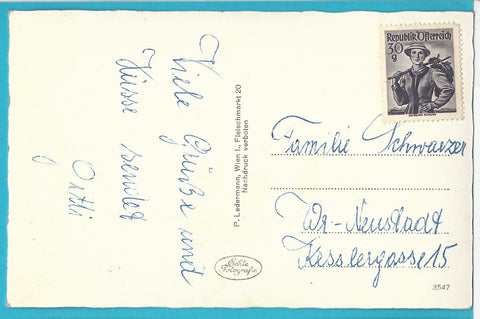 Viele Grüße und
Küsse sendet
P. Ledermann, Wien I., Fleischmarkt 20
Nachdruck verboten
Echte
Fotografie
Republik Österreich
30
g
Familie Schwarzer
Wr.-Neustadt
Kesslergasse 15
3547